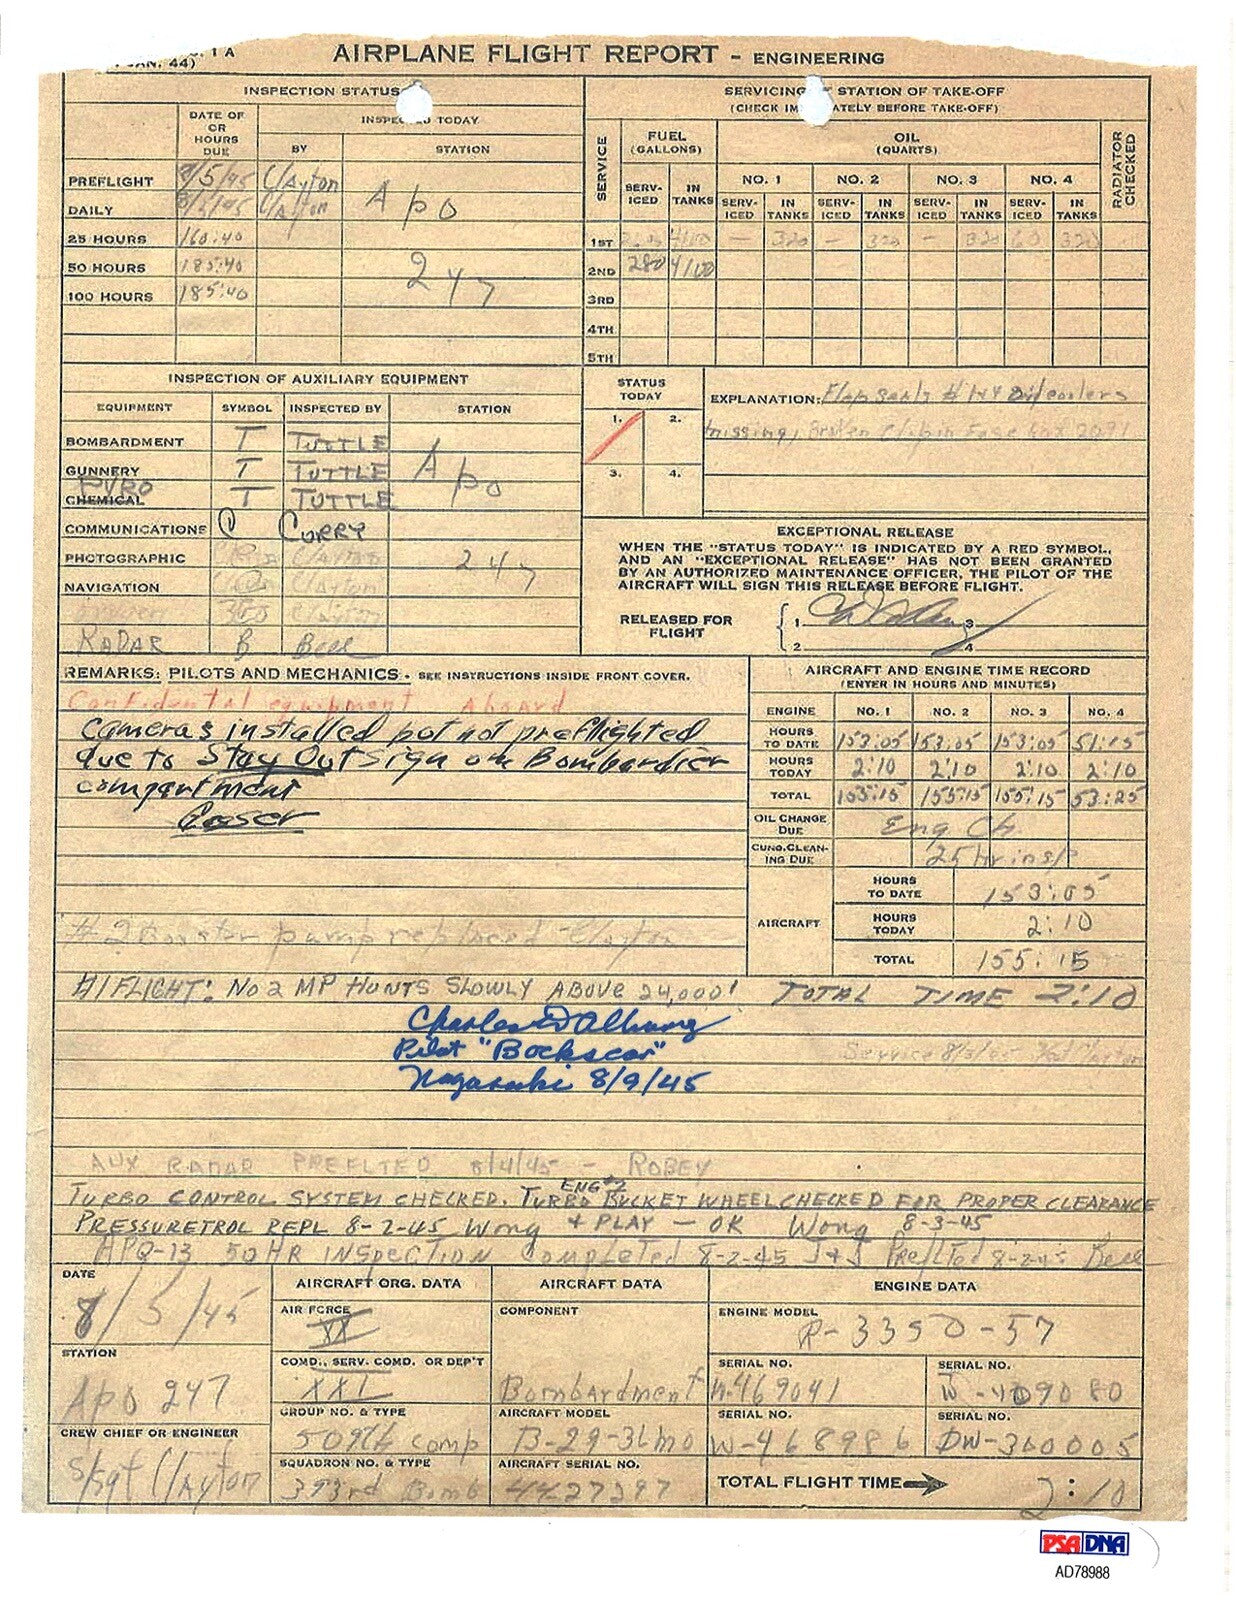 1 A
JAN. 44)
AIRPLANE FLIGHT REPORT - ENGINEERING
INSPECTION STATUS
DATE OF OR HOURS DUE
INSPECTED TODAY
BY
STATION
PREFLIGHT 8/5/45 Clayton
DAILY 8/5/45 Clayton
Apo
25 HOURS 160:40
50 HOURS 185:40
247
100 HOURS 185:40
SERVICING STATION OF TAKE-OFF
(CHECK IMMEDIATELY BEFORE TAKE-OFF)
SERVICE
FUEL (GALLONS)
OIL (QUARTS)
RADIATOR CHECKED
NO. 1 NO. 2 NO. 3 NO. 4
SERV-ICED IN TANKS SERV-ICED IN TANKS SERV-ICED IN TANKS SERV-ICED IN TANKS SERV-ICED IN TANKS
1ST 4100 - 320 - 320 - 320 60 320
2ND 280 4100
3RD
4TH
5TH
INSPECTION OF AUXILIARY EQUIPMENT
EQUIPMENT SYMBOL INSPECTED BY STATION
BOMBARDMENT T TUTTLE
GUNNERY T TUTTLE Apo
PYRO
CHEMICAL T TUTTLE
COMMUNICATIONS C CURRY
PHOTOGRAPHIC Clayton 247
NAVIGATION Clayton
Clayton
RADAR B Bell
STATUS TODAY
1. 2.
3. 4.
EXPLANATION: Flap Seals # 1 & 4 Oil coolers
missing, Broken Clip in Fuse Box 2091
EXCEPTIONAL RELEASE
WHEN THE "STATUS TODAY" IS INDICATED BY A RED SYMBOL,
AND AN "EXCEPTIONAL RELEASE" HAS NOT BEEN GRANTED
BY AN AUTHORIZED MAINTENANCE OFFICER, THE PILOT OF THE
AIRCRAFT WILL SIGN THIS RELEASE BEFORE FLIGHT.
RELEASED FOR FLIGHT
1 3
2 4
REMARKS: PILOTS AND MECHANICS - SEE INSTRUCTIONS INSIDE FRONT COVER.
Confidental equipment Aboard
Cameras installed bot not preflighted
due to Stay Out Sign on Bombardier
compartment
#2 Booster pump replaced - Clayton
AIRCRAFT AND ENGINE TIME RECORD
(ENTER IN HOURS AND MINUTES)
ENGINE NO. 1 NO. 2 NO. 3 NO. 4
HOURS TO DATE 153:05 153:05 153:05 51:15
HOURS TODAY 2:10 2:10 2:10 2:10
TOTAL 155:15 155:15 155:15 53:25
OIL CHANGE DUE Eng Ch
CUNO.CLEAN-ING DUE 25 hr insp
AIRCRAFT
HOURS TO DATE 153:05
HOURS TODAY 2:10
TOTAL 155:15
#1 FLIGHT: No 2 MP HUNTS SLOWLY ABOVE 24,000' TOTAL TIME 2:10
Charles D Albury
Pilot "Bockscar"
Nagasaki 8/9/45
Service Clayton
AUX RADAR PREFLTED 8/4/45 - ROBEY
TURBO CONTROL SYSTEM CHECKED. TURBO ENG #2 BUCKET WHEEL CHECKED FOR PROPER CLEARANCE
PRESSURETROL REPL 8-2-45 Wong + PLAY - OK Wong 8-3-45
APQ-13 50 HR INSPECTION Completed 8-2-45 J & J Preflted Bell
DATE
8/5/45
STATION
Apo 247
CREW CHIEF OR ENGINEER
S/Sgt Clayton
AIRCRAFT ORG. DATA
AIR FORCE
XX
COMD., SERV. COMD. OR DEP'T
XXI
GROUP NO. & TYPE
509th comp
SQUADRON NO. & TYPE
393rd Bomb
AIRCRAFT DATA
COMPONENT
Bombardment
AIRCRAFT MODEL
B-29-36 mo
AIRCRAFT SERIAL NO.
44-27297
ENGINE DATA
ENGINE MODEL
R-3350-57
SERIAL NO. SERIAL NO.
W-469041 W-409080
SERIAL NO. SERIAL NO.
W-468986 DW-360005
TOTAL FLIGHT TIME 2:10
PSA DNA
AD78988